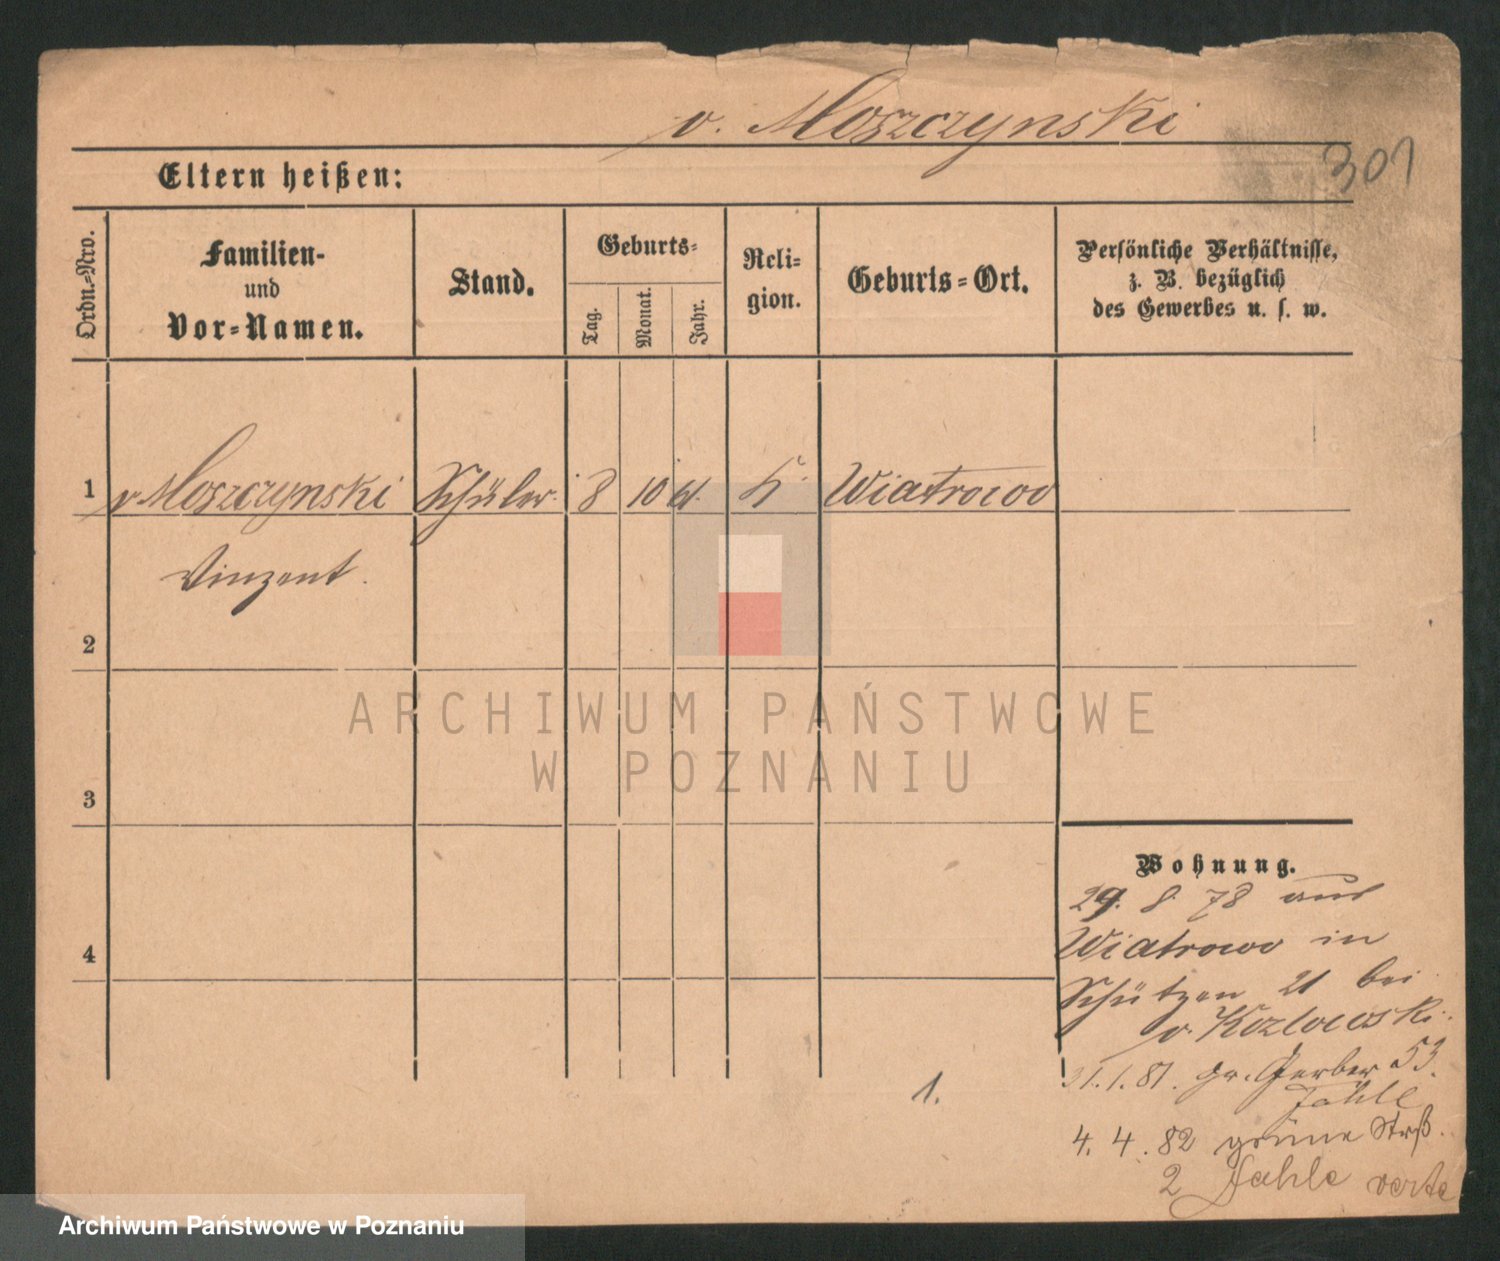 v. Moszczynski
301
Eltern heißen:
Ordn.-Nro.
Familien-
und
Vor-Namen.
Stand.
Geburts-
Tag.
Monat.
Jahr.
Reli-
gion.
Geburts-Ort.
Persönliche Verhältnisse,
z. B. bezüglich
des Gewerbes u. s. w.
1 v. Moszczynski Schüler. 8 10 61. K. Wiatrowo
Vinzent.
2
ARCHIWUM PAŃSTWOWE
W POZNANIU
3
Wohnung.
29. 8. 78 aus
4
Wiatrowo in
Schützen 21 bei
v. Kozlowski.
31. 1. 81. gr. Gerber 53.
1.
4. 4. 82 grüne Strß.
2 Jahle verte
Archiwum Państwowe w Poznaniu